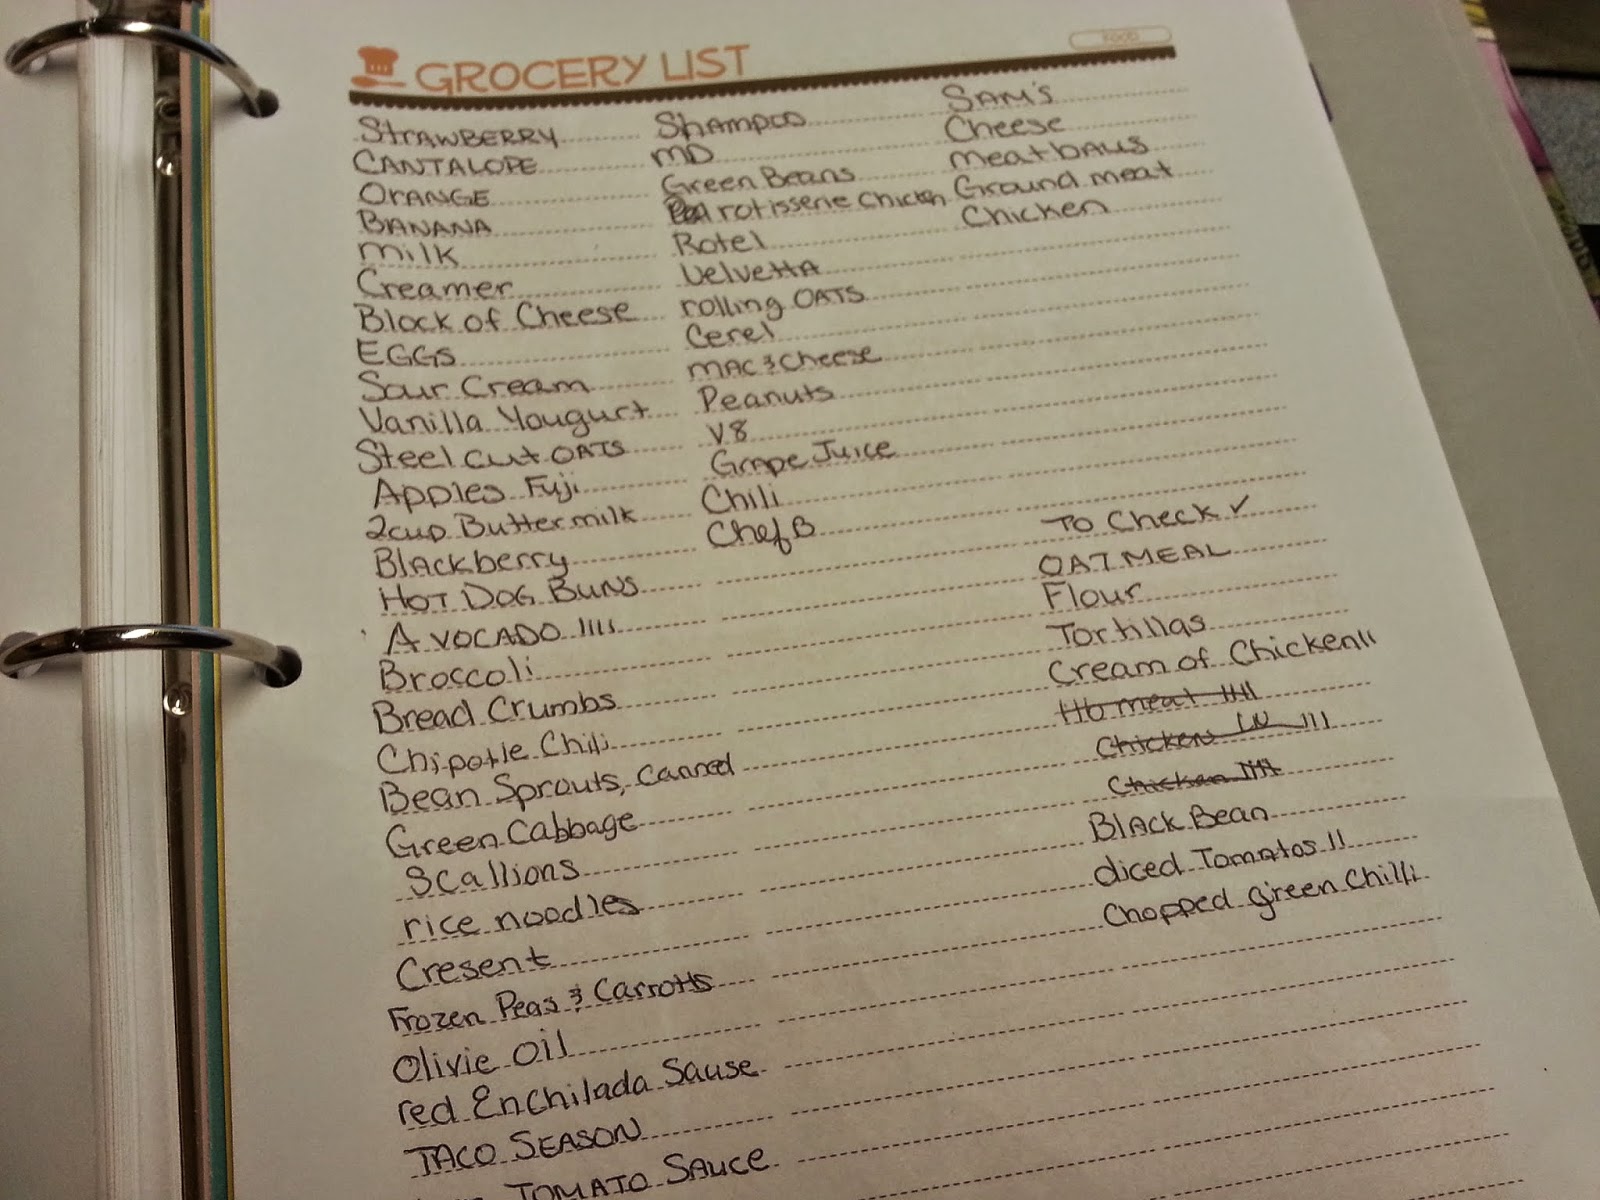 GROCERY LIST
FOOD
STrAWBERRY
CANTALOPE
OrANGE
BANANA
Milk
Creamer
Block of Cheese
EGGS
Sour Cream
Vanilla Yougurt
Steel cut OATS
Apples Fuji
2cup Buttermilk
Blackberry
HOT DOG BUNS
AVOCADO IIII
Broccoli
Bread Crumbs
Chipotle Chili
Bean Sprouts, canned
Green Cabbage
Scallions
rice noodles
Cresent
Frozen Peas & Carrotts
Olivie Oil
red Enchilada Sause
TACO SEASON
TOMATO SAUCE
Shampoo
MD
Green Beans
rotisserie Chicken
Rotel
Velvetta
rolling OATS
Cerel
MAC & Cheese
Peanuts
V8
Grape Juice
Chili
Chef B
SAM'S
Cheese
Meatballs
Ground meat
Chicken
To Check ✓
OATMEAL
Flour
Tortillas
Cream of Chicken II
Hb meat IIII
Chicken III
Chicken IIII
Black Bean
diced Tomatos II
Chopped green Chilli